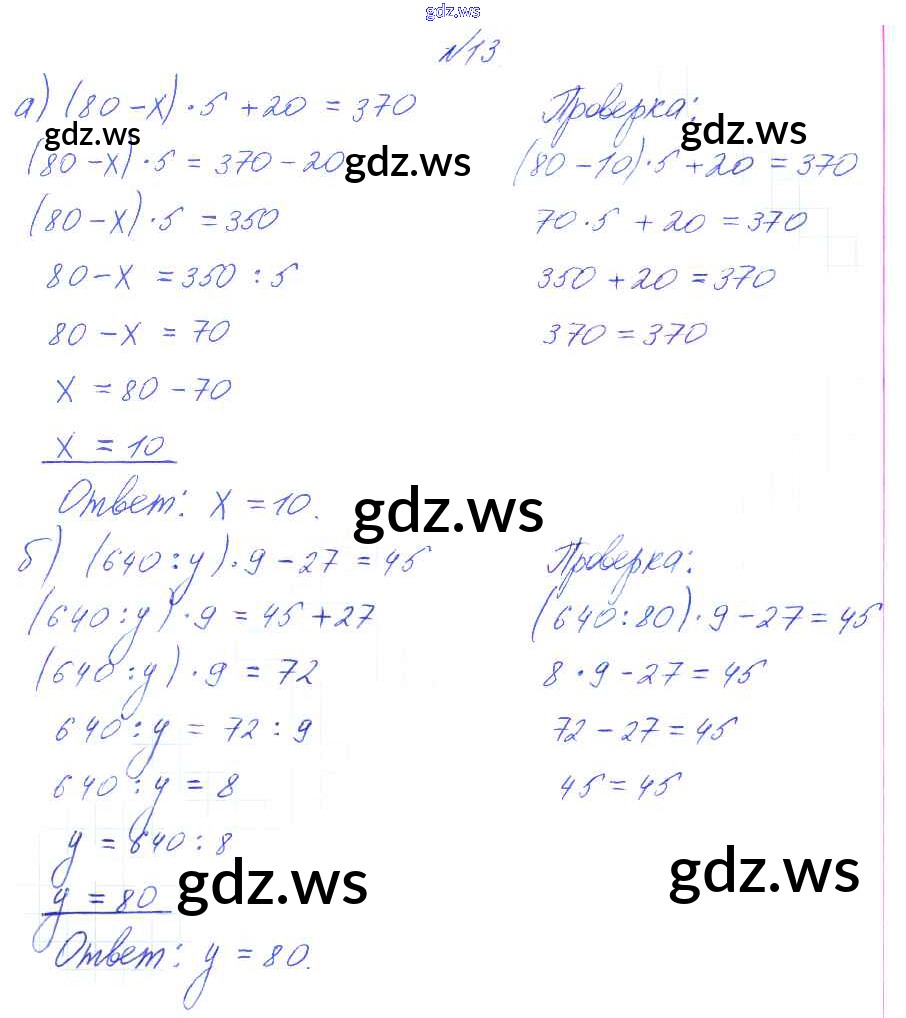 gdz.ws
№13
а) (80-x)·5+20=370
gdz.ws
(80-x)·5=370-20
gdz.ws
(80-x)·5=350
80-x=350:5
80-x=70
x=80-70
x=10
Ответ: x=10.
Проверка:
gdz.ws
(80-10)·5+20=370
70·5+20=370
350+20=370
370=370
gdz.ws
б) (640:y)·9-27=45
(640:y)·9=45+27
(640:y)·9=72
640:y=72:9
640:y=8
y=640:8
y=80
gdz.ws
Ответ: y=80.
Проверка:
(640:80)·9-27=45
8·9-27=45
72-27=45
45=45
gdz.ws